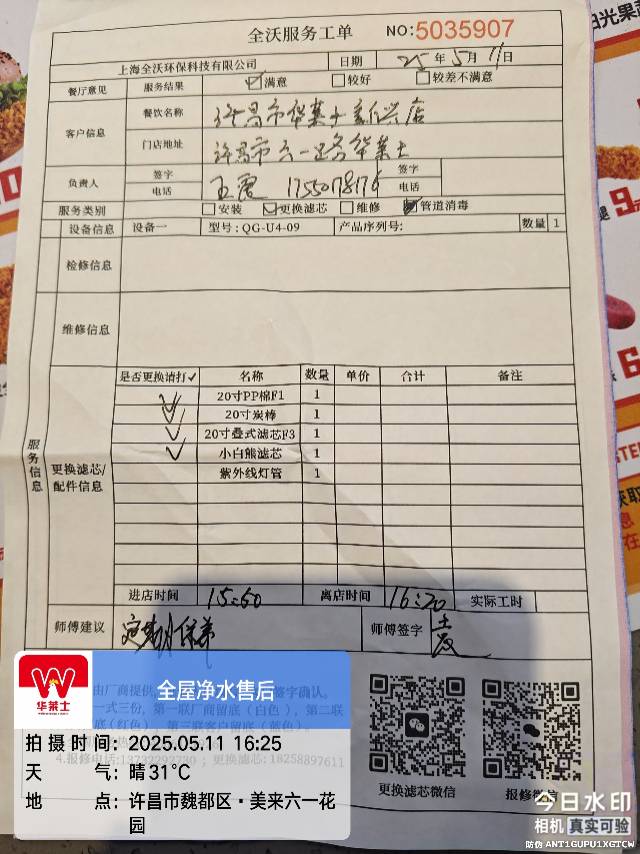 全沃服务工单 NO:5035907
上海全沃环保科技有限公司 日期 25年5月11日
餐厅意见 服务结果 满意 较好 较差不满意
客户信息 餐饮名称 许昌市华莱士新兴店
门店地址 许昌市六一路华莱士
负责人 签字 签字
电话 电话
服务类别 安装 更换滤芯 维修 管道消毒
设备信息 设备一 型号:QG-U4-09 产品序列号: 数量 1
检修信息
维修信息
服务信息
更换滤芯/配件信息
是否更换请打✓ 名称 数量 单价 合计 备注
✓ 20寸PP棉F1 1
✓ 20寸炭棒 1
✓ 20寸叠式滤芯F3 1
✓ 小白熊滤芯 1
紫外线灯管 1
进店时间 15:50 离店时间 16:20 实际工时
师傅建议 定期保养 师傅签字
由厂商提供 签字确认。
一式三份，第一联厂商留底（白色），第二联
底(红色)，第三联客户留底（蓝色）。
4.报修电话:13732292730；更换滤芯:18258897611
更换滤芯微信 报修微信
华莱士
全屋净水售后
拍摄时间：2025.05.11 16:25
天气：晴31℃
地点：许昌市魏都区·美来六一花
园
今日水印
相机 真实可验
防伪 ANT1GUPU1XGTCW